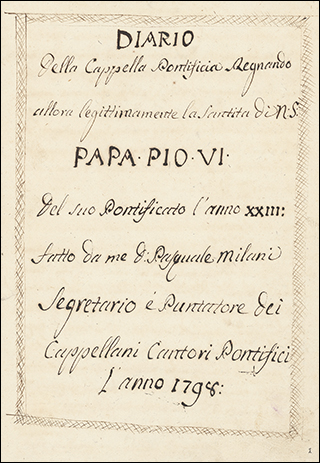 DIARIO
Della Cappella Pontificia Regnando
allora legittimamente la Santita di N. S.
PAPA · PIO · VI ·
Del suo Pontificato l'anno XXIII:
fatto da me D. Pasquale Milani
Segretario é Puntatore dei
Cappellani Cantori Pontifici
L'anno 1798:
1